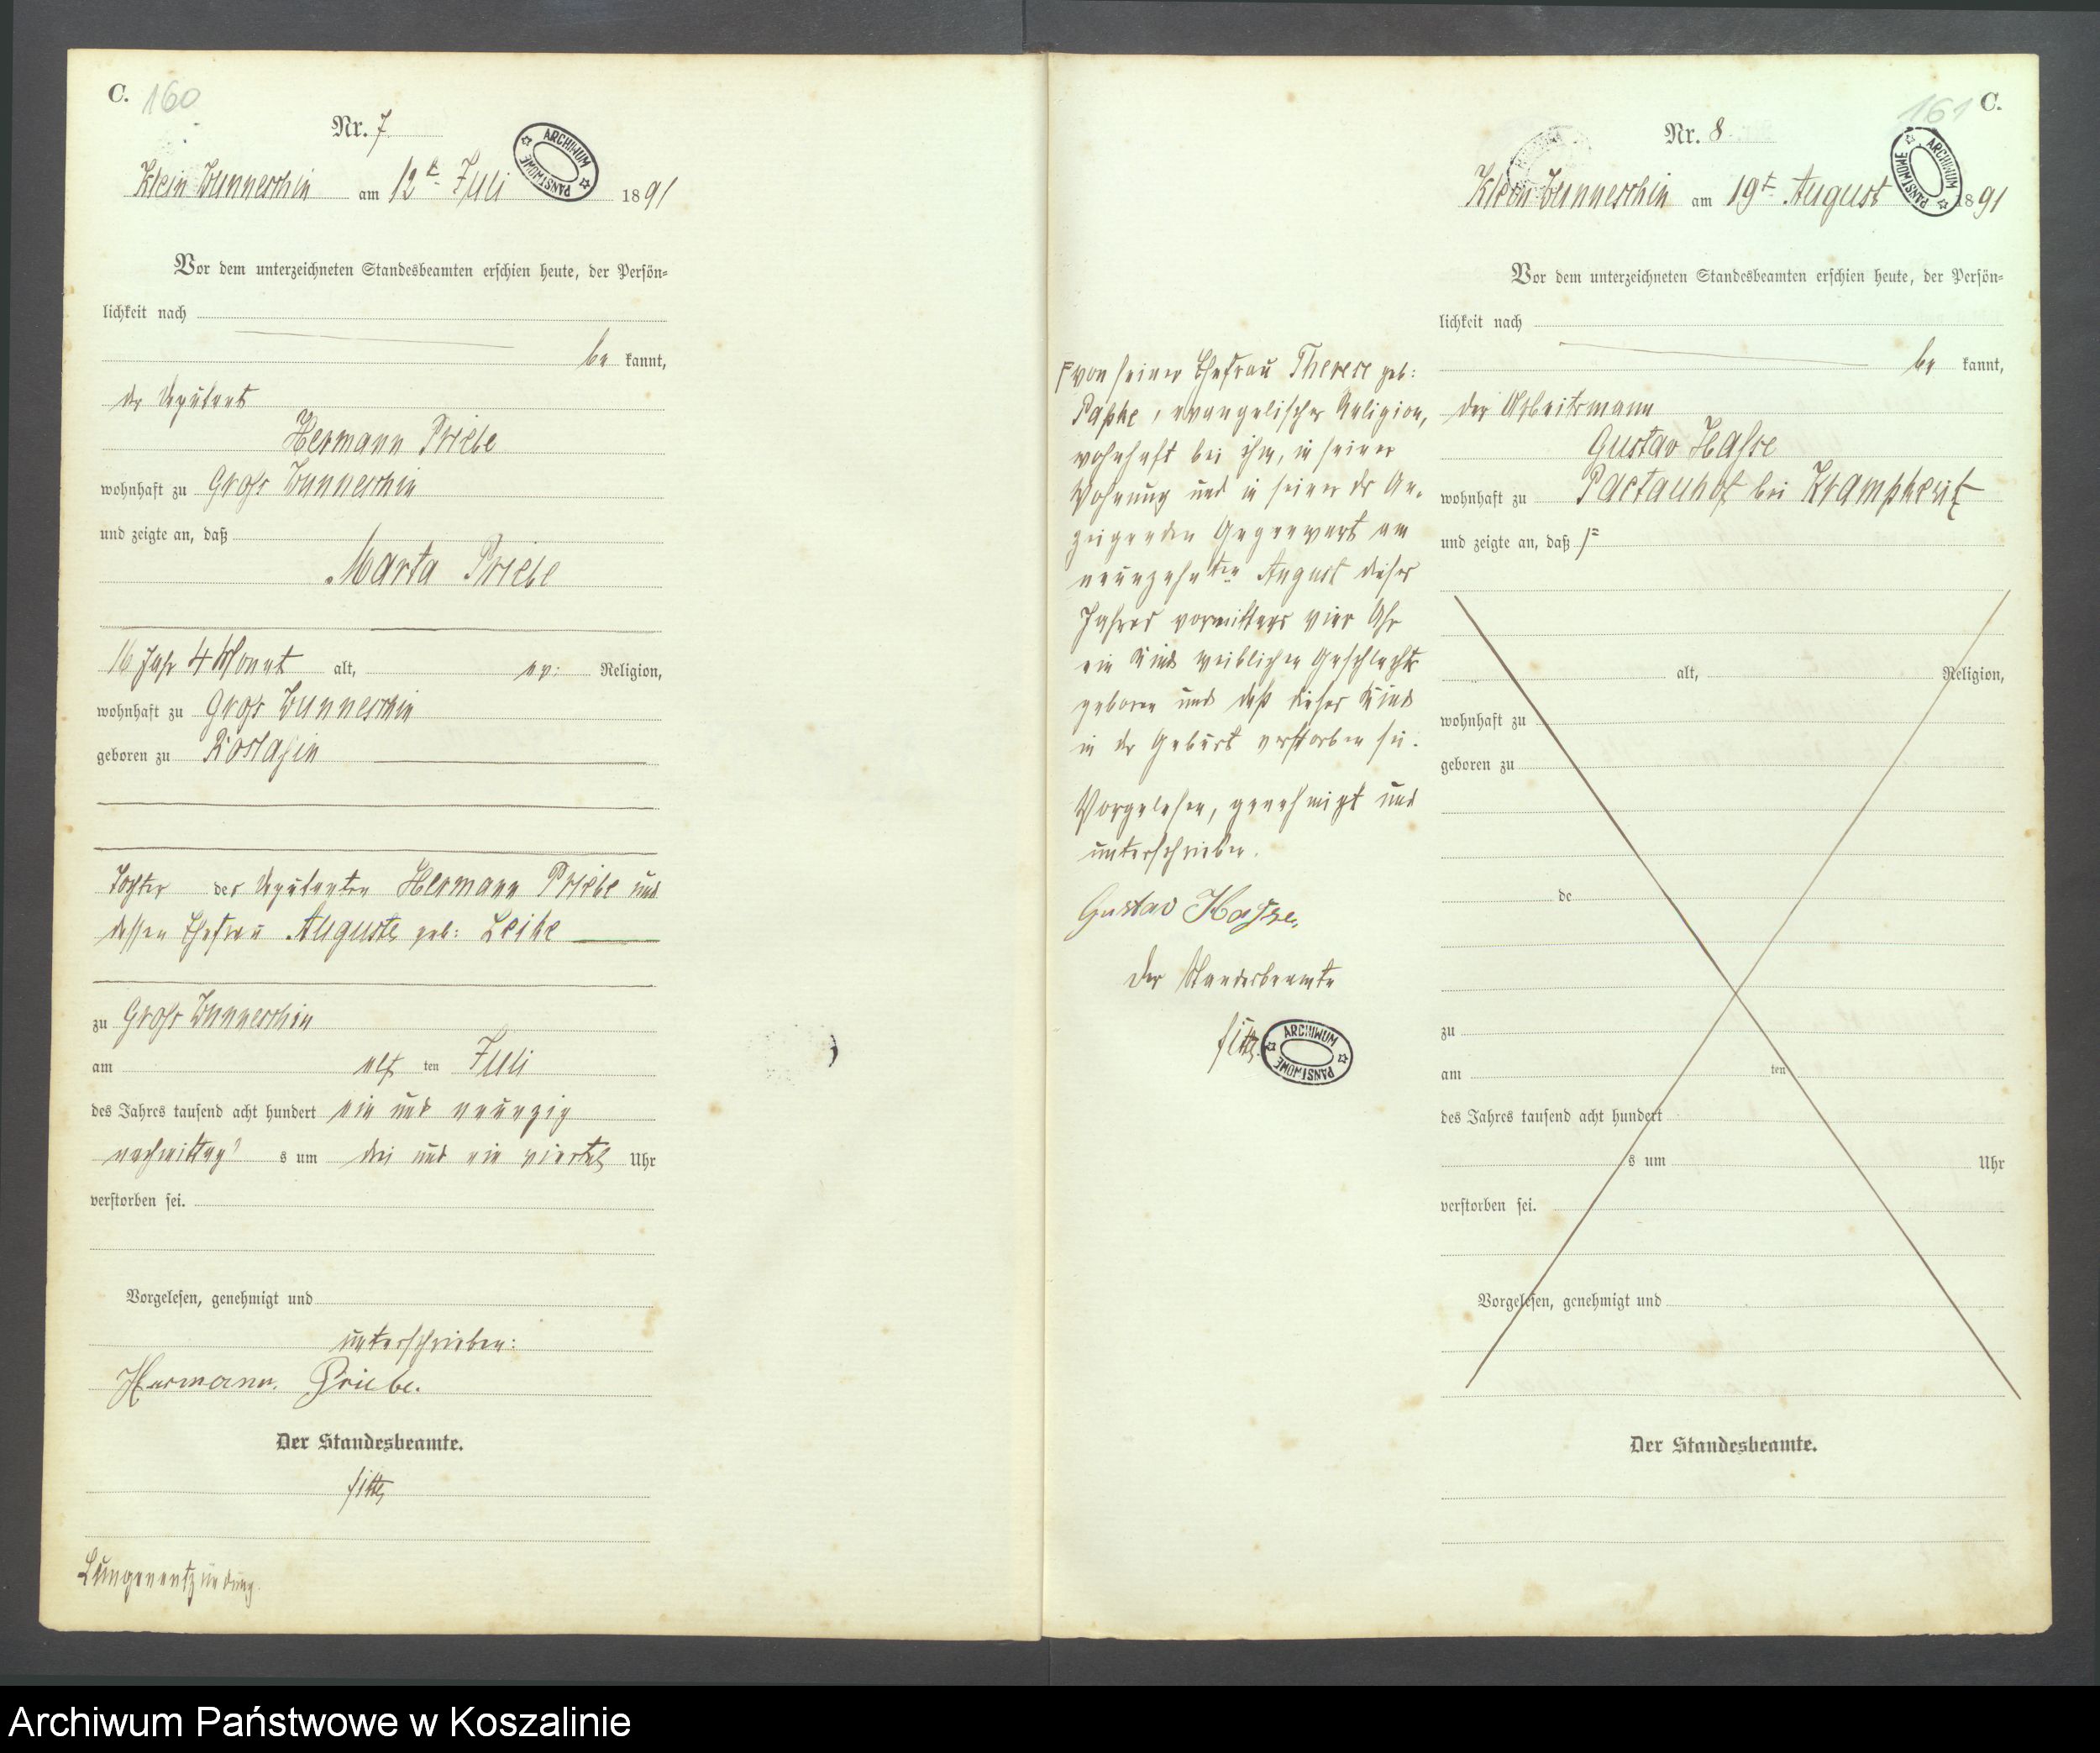 C. 160
Nr. 7.
ARCHIWUM PAŃSTWOWE
Klein Wunneschin am 12t Juli 1891
Vor dem unterzeichneten Standesbeamten erschien heute, der Persön=
lichkeit nach
be kannt,
der Deputant
Hermann Priebe
wohnhaft zu Gross Wunneschin
und zeigte an, daß
Marta Priebe
16 Jahr 4 Monat alt, ev: Religion,
wohnhaft zu Gross Wunneschin
geboren zu
Tochter des Deputanten Hermann Priebe und
dessen Ehefrau Auguste geb:
zu Gross Wunneschin
am elf ten Juli
des Jahres tausend acht hundert ein und neunzig
nachmittag s um drei und ein viertel Uhr
verstorben sei.
Vorgelesen, genehmigt und
unterschrieben:
Hermann. Priebe.
Der Standesbeamte.
Lungenentzündung.
161 C.
Nr. 8
ARCHIWUM PAŃSTWOWE
Klein Wunneschin am 19t August 1891
Vor dem unterzeichneten Standesbeamten erschien heute, der Persön=
lichkeit nach
be kannt,
der Arbeitsmann
Gustav Hasse
wohnhaft zu bei
und zeigte an, daß
alt, Religion,
wohnhaft zu
geboren zu
de
zu
am ten
des Jahres tausend acht hundert
s um Uhr
verstorben sei.
Vorgelesen, genehmigt und
Der Standesbeamte.
von seiner Ehefrau Therese geb:
evangelischer Religion,
wohnhaft bei ihm, in seiner
Wohnung und in seiner des An=
zeigenden Gegenwart am
neunzehnten August dieses
Jahres vormittags vier Uhr
ein Kind weiblichen Geschlechts
geboren und daß dieses Kind
in der Geburt verstorben sei.
Vorgelesen, genehmigt und
unterschrieben.
Gustav Hasse.
Der Standesbeamte
ARCHIWUM PAŃSTWOWE
Archiwum Państwowe w Koszalinie